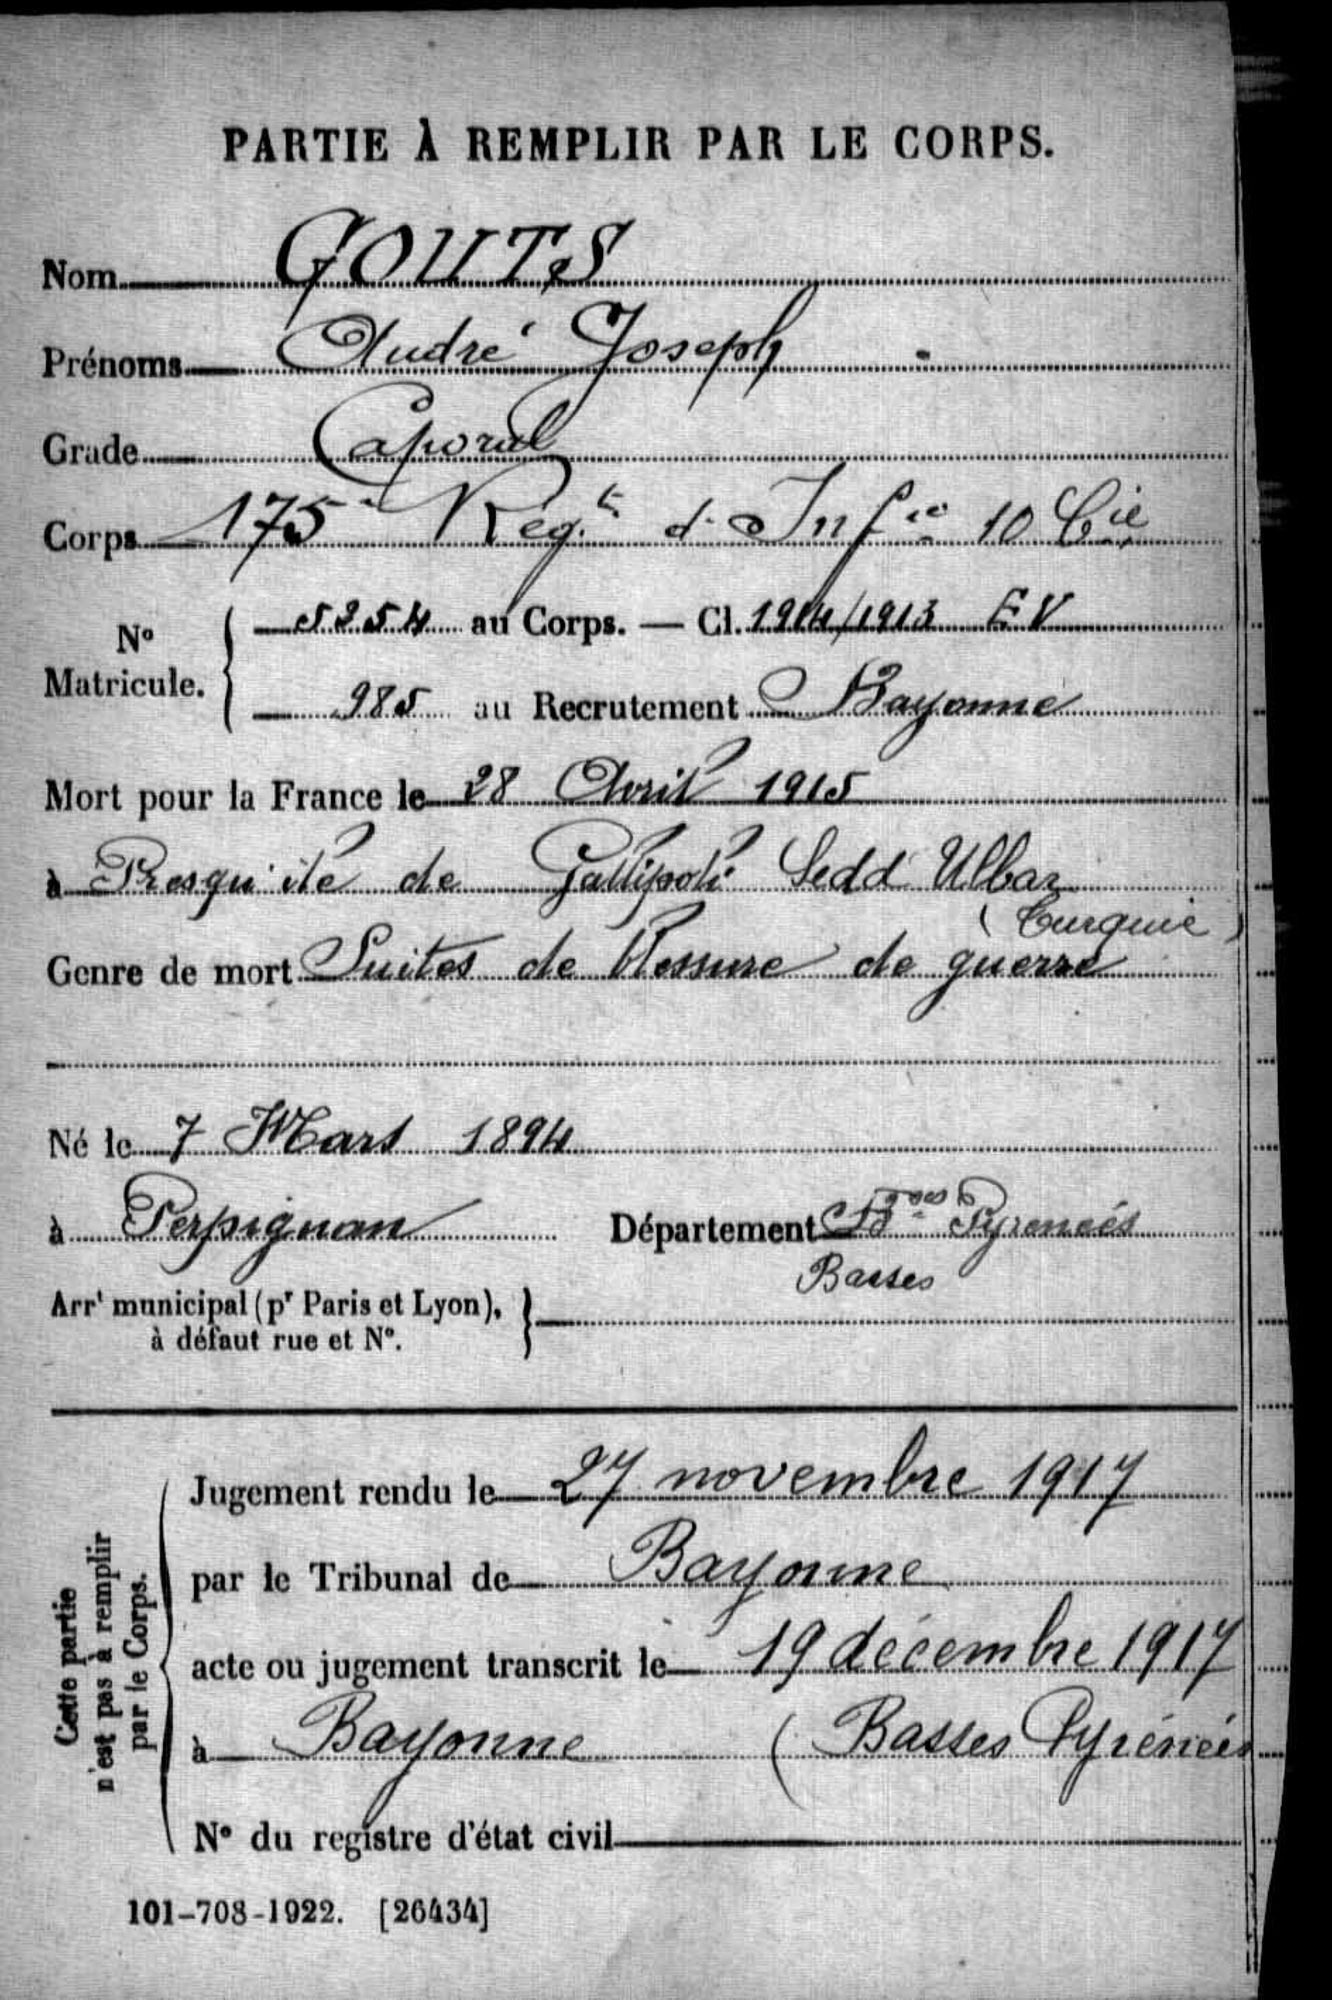 PARTIE À REMPLIR PAR LE CORPS.
Nom GOUTS
Prénoms André Joseph
Grade Caporal
Corps 175e Régt d'Infie 10 Cie
No Matricule. { 5254 au Corps. — Cl. 1914/1913 EV
985 au Recrutement Bayonne
Mort pour la France le 28 Avril 1915
à Presqu'ile de Gallipoli Sedd Ulbar
(Turquie)
Genre de mort Suites de blessure de guerre
Né le 7 Mars 1894
à Perpignan Département Bses Pyreneés
Basses
Arrt municipal (pr Paris et Lyon), }
à défaut rue et No.
Cette partie
n'est pas à remplir
par le Corps.
Jugement rendu le 27 novembre 1917
par le Tribunal de Bayonne
acte ou jugement transcrit le 19 décembre 1917
à Bayonne (Basses Pyrénées
No du registre d'état civil
101-708-1922. [26434]